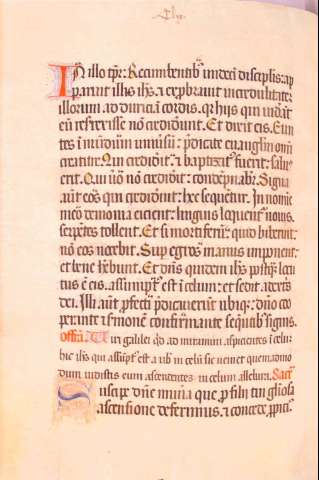 In illo tpr: Recumbentib' undeci discipulis: ap
paruit illis ihs. et exprobravit incredulitatem
illorum ad duricia cordis. qr hijs qui viderat
eu resurrexisse no crediderut. Et dixit eis. Eun
tes i mudum univsu: predicate euangliu omi
creature. Qui crediderit: et baptizat' fuerit: salv'
erit. Qui uo no crediderit: condepnabit'. Signa
aut eos qui crediderint: hec sequetur. In nomie
meo demonia eicient: linguis loquent' novis.
serpetes tollent. Et si mortiferu: quid biberint:
no eos nocebit. Sup egros manus imponent:
et bene hebunt. Et dns quidem ihs postq locu
tus e eis. assumpt' est i celum: et sedet a dextris
dei. Illi aut profecti predicauerut ubiq: dno coo
perante et smone confirmante sequetib' signis.
offm. Viri galilei qd ad miramini aspicietes i celu:
hic ihs qui assupt' est a vb in celu sic veniet quemadmo
dum vidistis eum ascendetes in celum alleluya. Sacr
Suscipe dne munera que p filii tui gliosa
ascensione deferimus. et concede ppici'